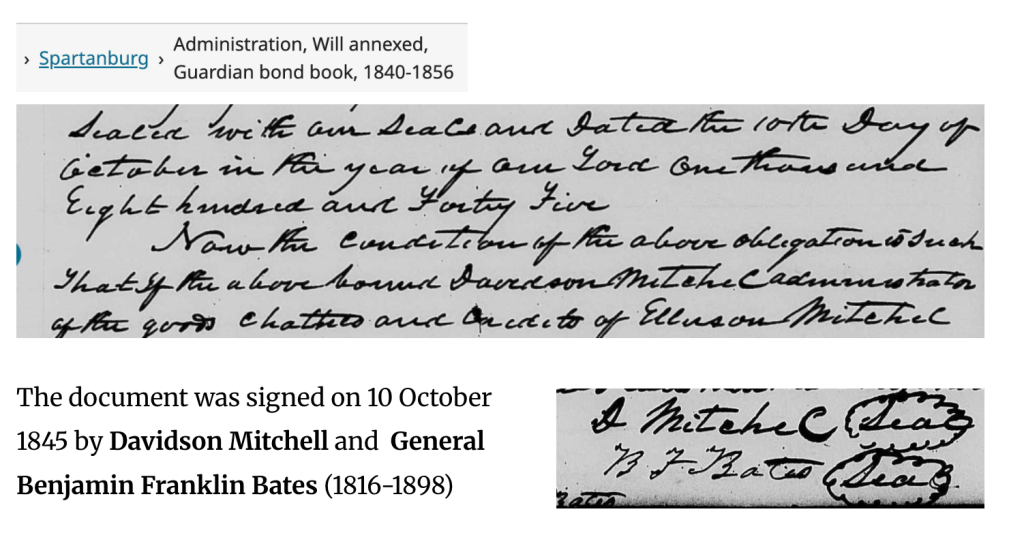 › Spartanburg › Administration, Will annexed,
Guardian bond book, 1840-1856
Sealed with our Seals and Dated the 10th Day of
October in the year of our Lord One thousand
Eight hundred and Forty Five
Now the Condition of the above obligation is Such
That If the above bound Davidson Mitchel administrator
of the goods Chatties and Credits of Ellison Mitchel
The document was signed on 10 October
1845 by Davidson Mitchell and General
Benjamin Franklin Bates (1816–1898)
D Mitchel Seal
B F Bates Seal
Bates